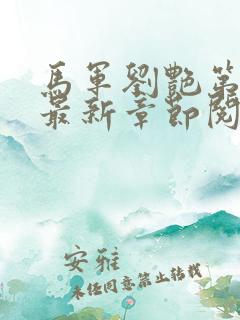 馬軍劉艷第
最新章節閱
安雅
未經同意禁止轉載